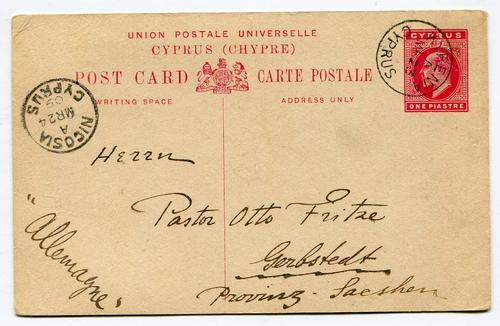 UNION POSTALE UNIVERSELLE
CYPRUS (CHYPRE)
POST CARD CARTE POSTALE
WRITING SPACE ADDRESS ONLY
CYPRUS
ONE PIASTRE
CYPRUS
NICOSIA
CYPRUS
A
MR 24
09
Herrn
Pastor Otto Fritze
Gerbstedt
Provinz - Sacshen
"Allemagne"